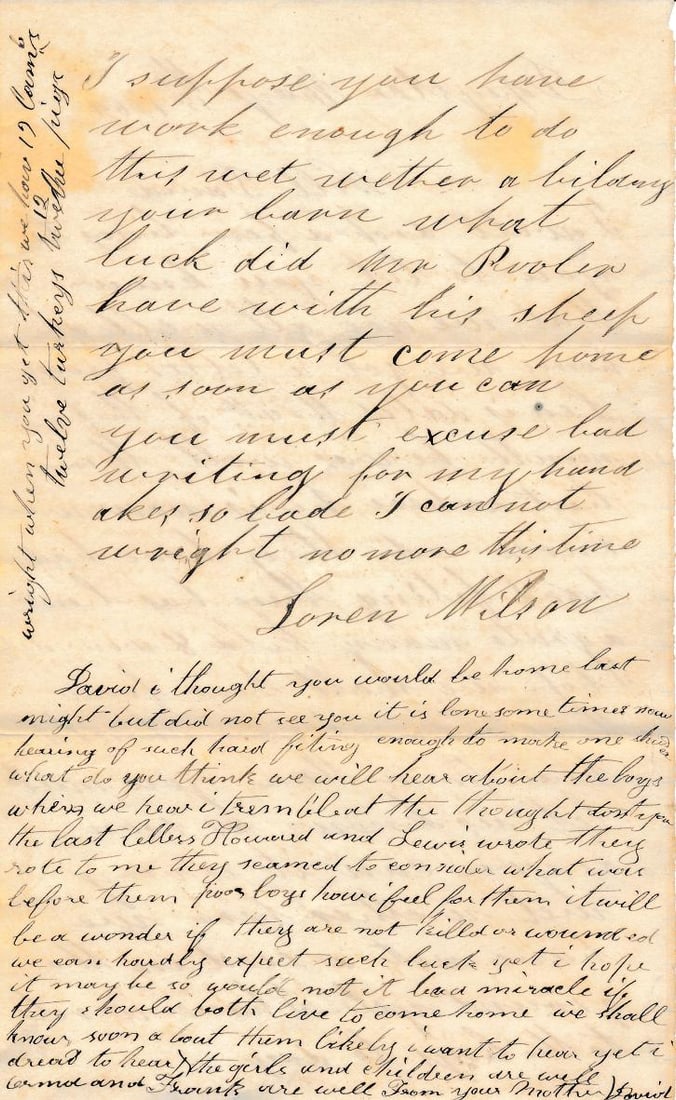 I suppose you have
work enough to do
this wet wether a bilding
your barn what
luck did Mr Pooler
have with his sheep
you must come home
as soon as you can
you must excuse bad
writing for my hand
akes so bade I can not
wright no more this time
Loren Wilson
wright when you get this we hav 19 Lambs
12
twelve turkeys twelve pigs
David i thought you would be home last
night but did not see you it is lonesome times now
hearing of such hard fiting enough to make one shuder
what do you think we will hear about the boys
when we hear i tremble at the thought dont you
the last letters Howard and Lewis wrote they
rote to me they seamed to consider what was
before them poor boys how i feel for them it will
be a wonder if they are not killd or wounded
we can hardly expect such luck yet i hope
it may be so would not it be a miracle if
they should both live to come home we shall
know soon a bout them likely i want to hear yet i
dread to hear the girls and children are well
and Frank are well From your Mother David